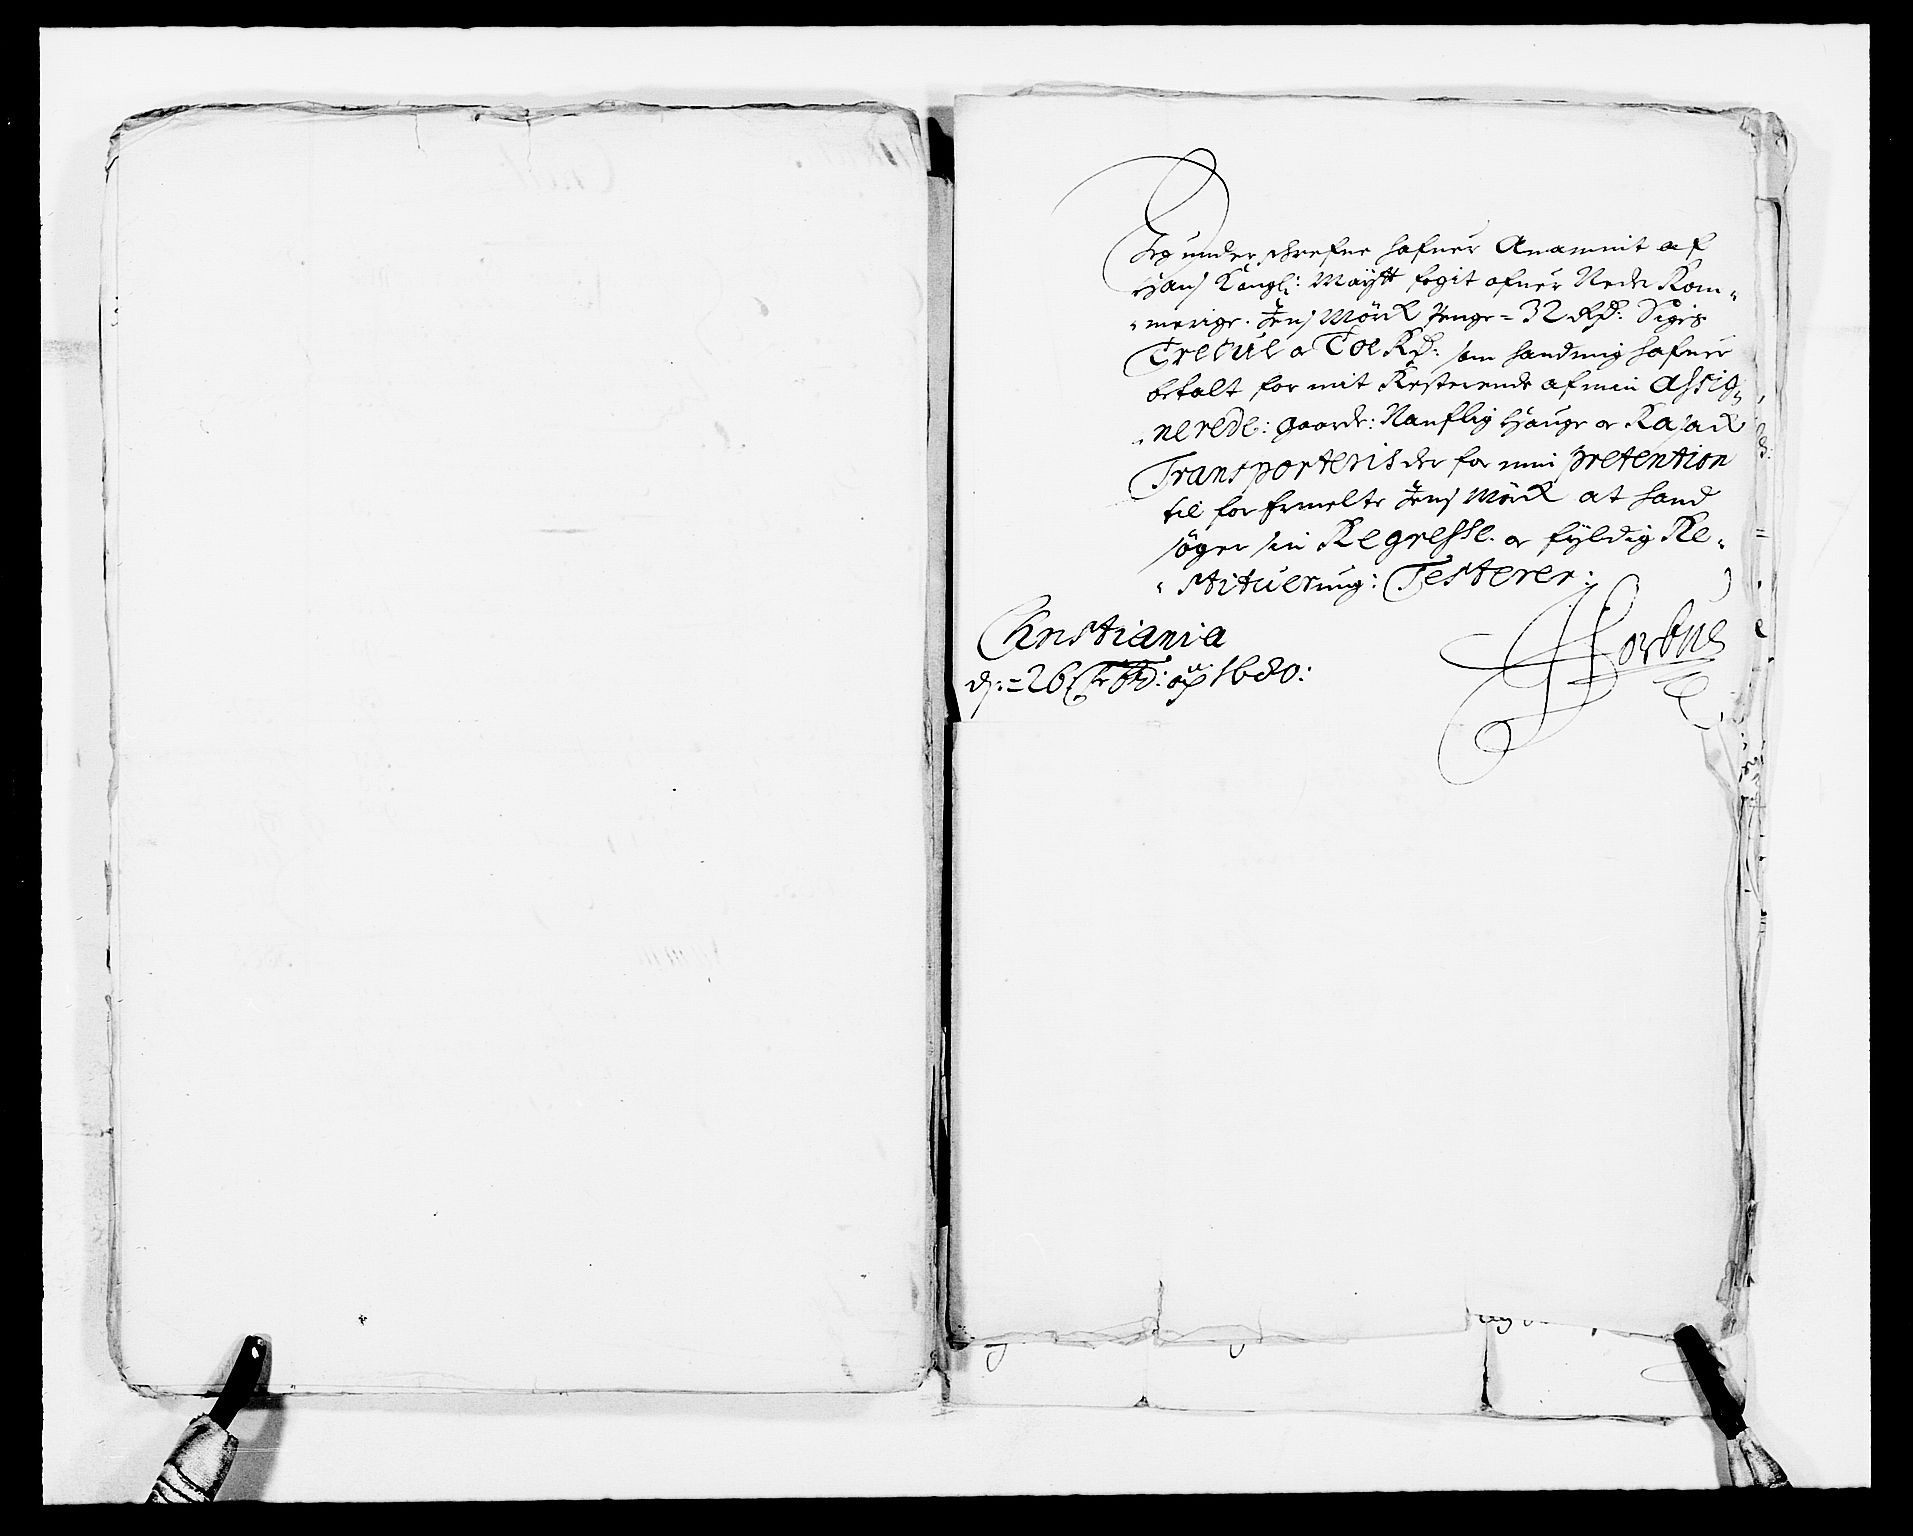 Jeg underschrefne hafuer Anammit af
Hans Kongl: Maÿtt fogit ofuer Nedre Rom-
-merige. Jens Mörck Penge = 32 Rd: Siger
Tretue o Toe Rd: som hand mig hafuer
betalt for mit Resterende af min Assig-
-nerede: gaarde: Nanflig Hauge o
Transporteris der for min pretention
til for ermelte Jens Mörck at hand
söger sin Regresse. o fyldig Re-
-stituering: Testerer:
Christiania
d: = 26 8b: ao 1680: